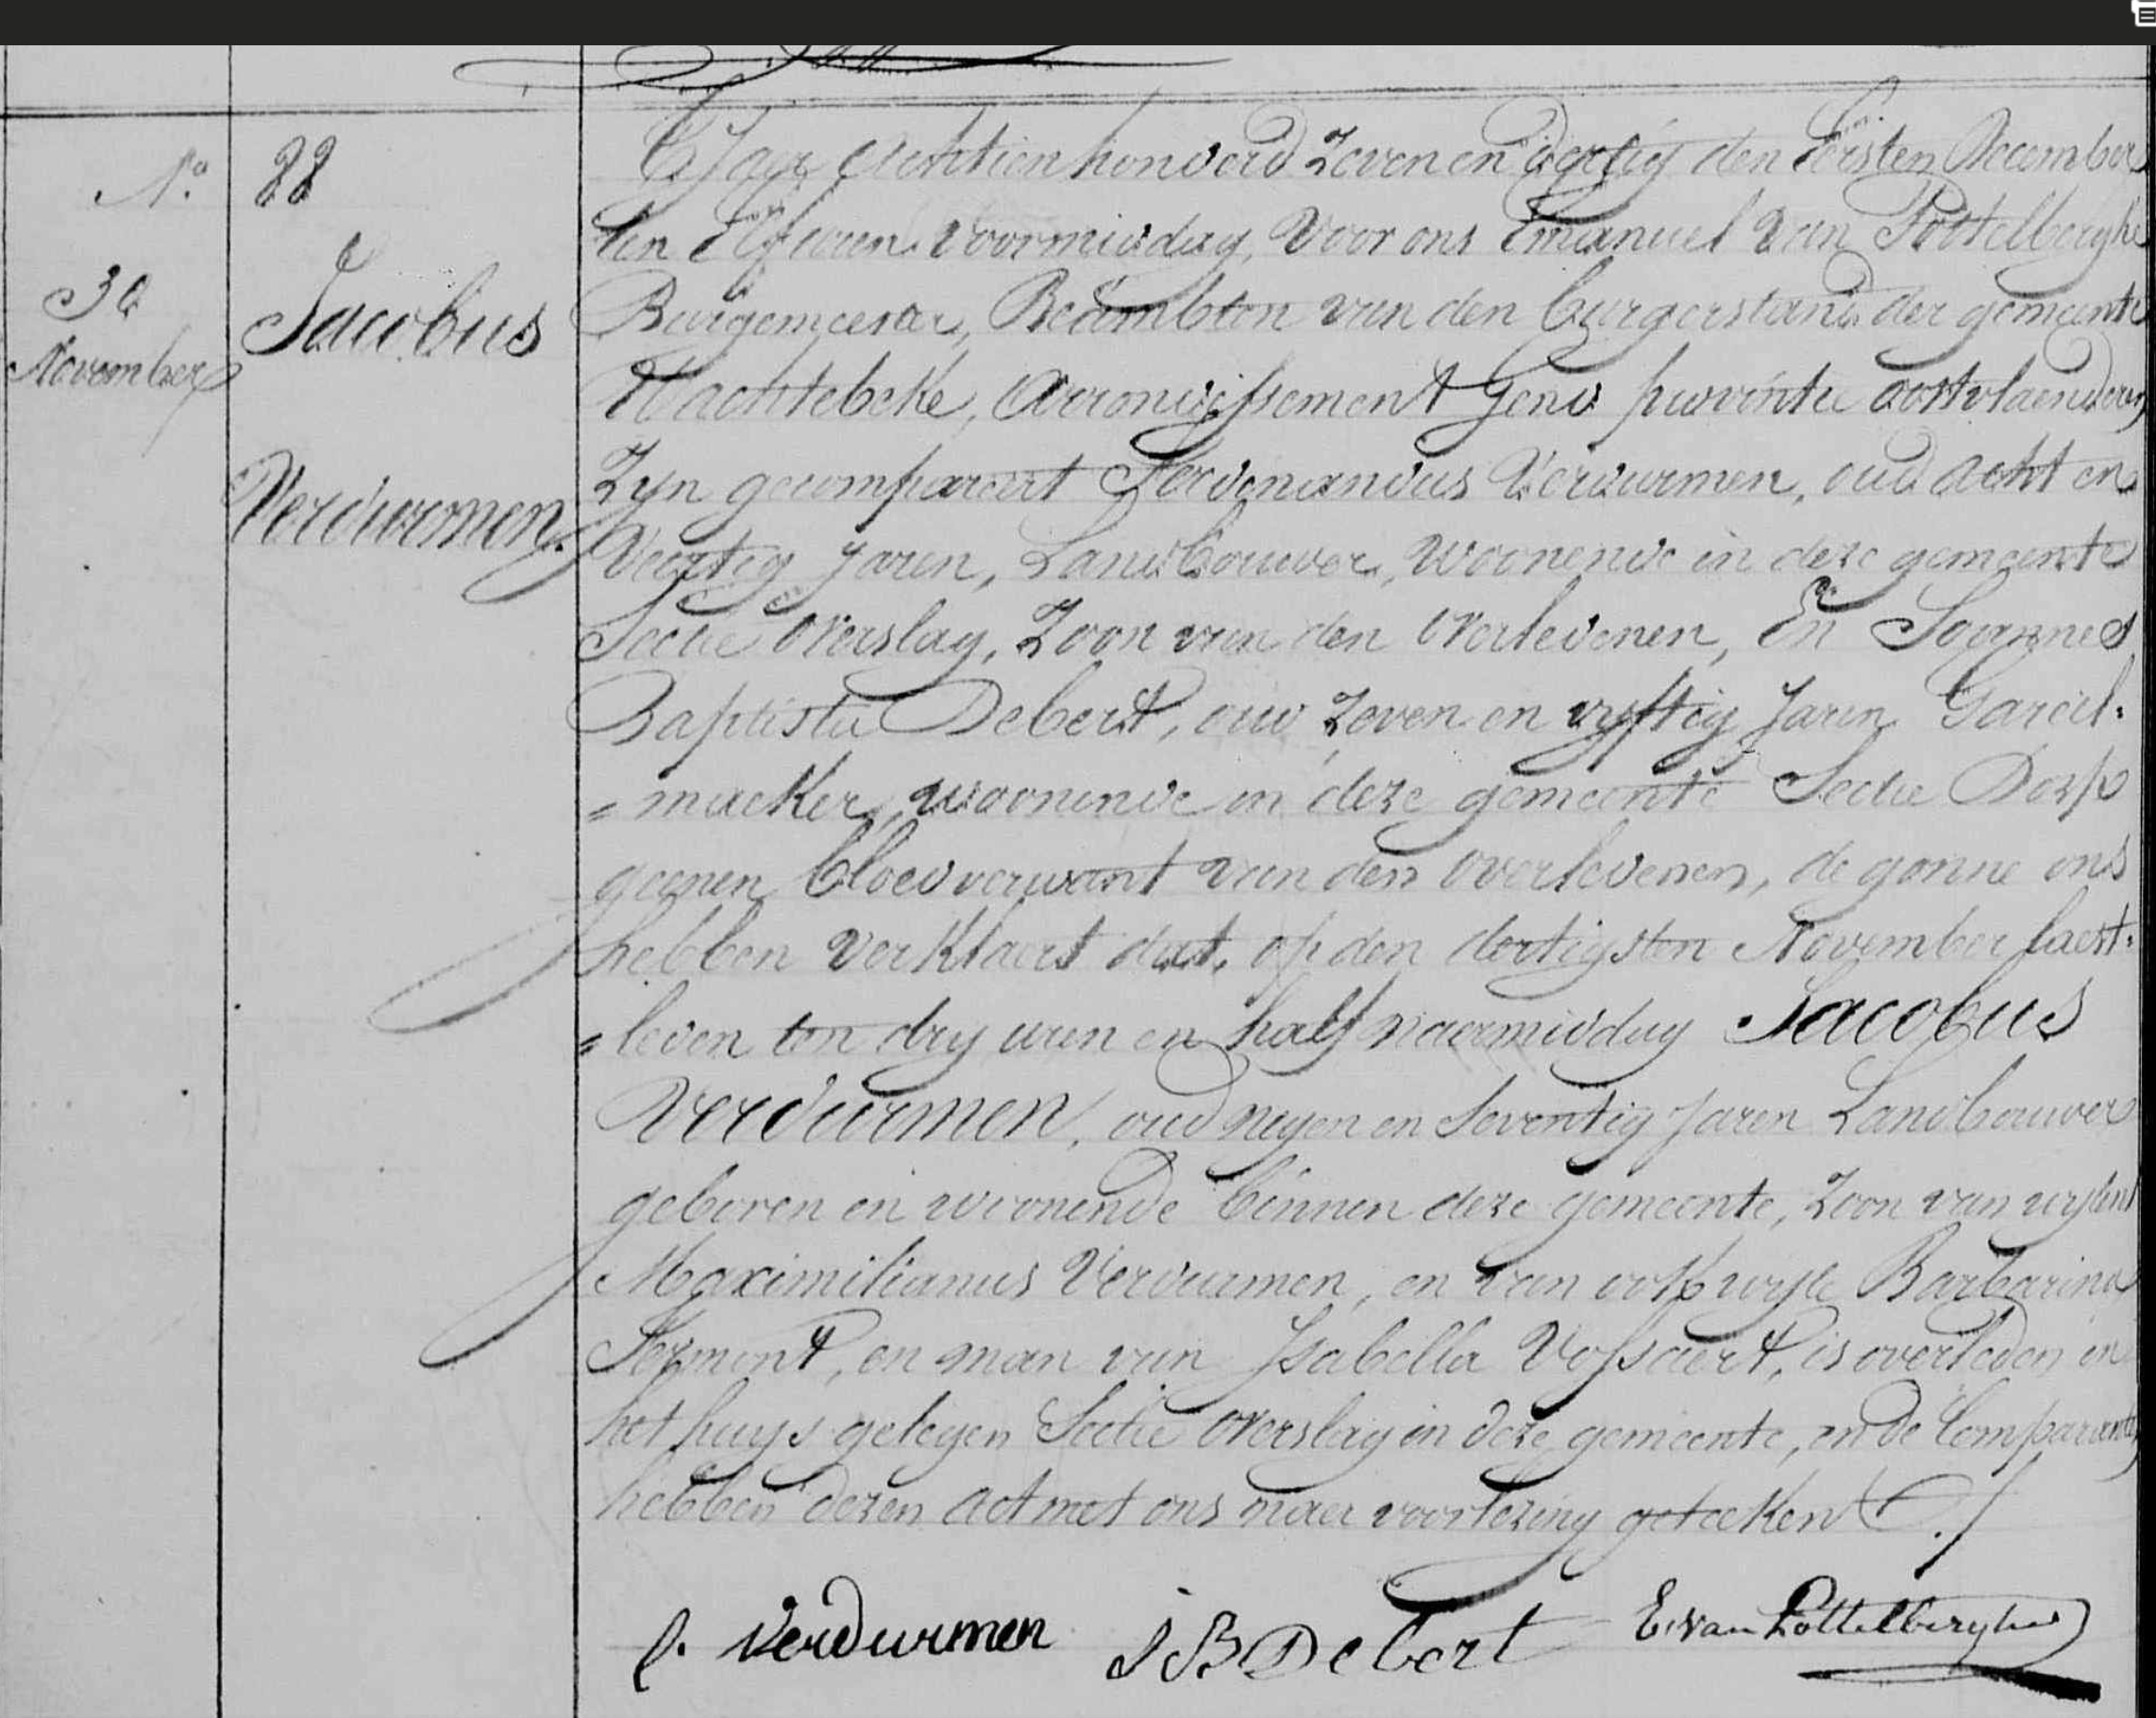 N.o 88
30
November
Jacobus
Verdurmen
T'Jaer Achtien honderd Zeven en dertig den Eersten December
ten Elf uren voormiddag, Voor ons Emanuel Van Pottelberghe
Burgemeester, Beambten van den burgerstand der gemeente
Wachtebeke, Arrondissement Gend provintie oostvlaenderen
Zyn gecompareert Ferdenandus Verdurmen, oud acht en
Veertig Jaren, Landbouwer, Woonende in deze gemeente
Sectie Overslag, Zoon van den Overledenen, En Joannes
Baptista Debert, oud Zeven en vyftig Jaren
-maeker, woonende in deze gemeente Sectie Dorp
geenen bloedverwant van den overledenen, de gonne ons
hebben verklaert dat, op den dertigsten November laest-
=leden ten dry uren en half naermiddag Jacobus
Verdurmen, oud negen en Seventig Jaren Landbouwer
geboren en woonende binnen deze gemeente, Zoon van wylent
Maximilianus Verdurmen, en van ook wyle Barbarina
en man van Isabella Vossaert, is overleden in
het huys gelegen Sectie Overslag in deze gemeente, en de Comparanten
hebben dezen act met ons naer voorlezing geteekent ./
Verdurmen J B Debert E. Van Pottelberghe